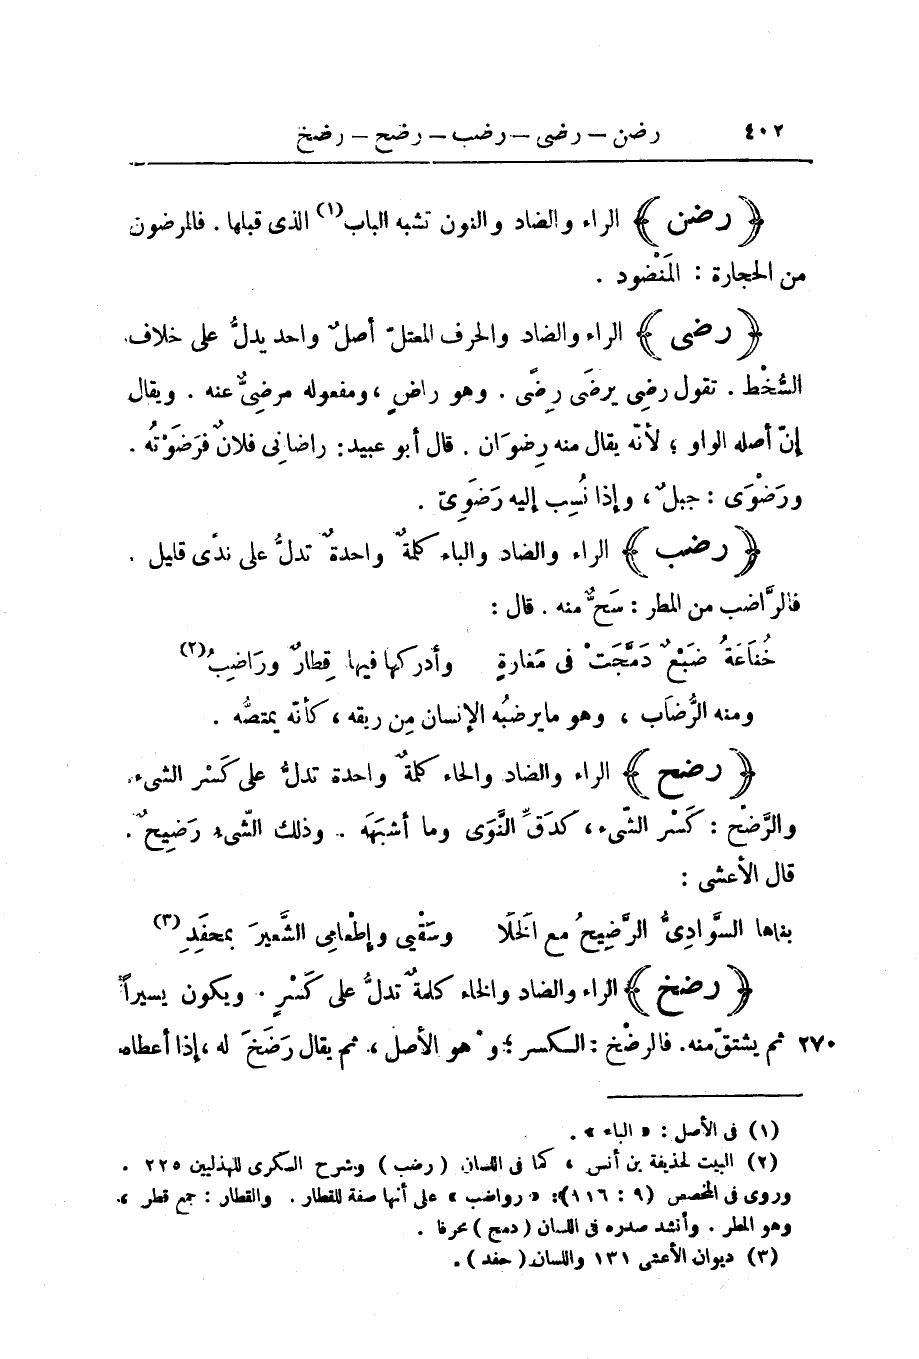 ٤٠٢ رضن – رضى – رضب – رضح – رضخ
﴿ رضن ﴾ الراء والضاد والنون تشبه الباب(١) الذى قبلها . فالمرضون
من الحجارة : المَنْضود .
﴿ رضى ﴾ الراء والضاد والحرف المعتلّ أصلٌ واحد يدلُّ على خلاف
السُّخْط . تقول رضِى يرضَى رِضًى . وهو راضٍ ، ومفعوله مرضِىٌّ عنه . ويقال
إنّ أصله الواو ؛ لأنّه يقال منه رِضوَان . قال أبو عبيد: راضانِى فلانٌ فرَضَوْتُه .
ورَضْوَى : جبلٌ ، وإذا نُسِب إليه رَضَوِىّ .
﴿ رضب ﴾ الراء والضاد والباء كلمةٌ واحدةٌ تدلُّ على ندًى قليل .
فالرَّاضب من المطر : سَحٌّ منه . قال :
خُفَاعَةُ ضَبْعٌ دَمَّجَتْ فى مَغارةٍ وأدركها فيها قِطارٌ ورَاضِبُ(٢)
ومنه الرُّضاَب ، وهو مايرضبُه الإنسان مِن ريقه ، كأنّه يمتصُّه .
﴿ رضح ﴾ الراء والضاد والحاء كلمةٌ واحدة تدلُّ على كَسْر الشىء.
والرَّضْح : كَسْر الشّىء ، كدَقِّ النَّوَى وما أشبَهَه . وذلك الشّىء رَضِيحٌ .
قال الأعشى :
بناها السَّوَادِىُّ الرَّضِيحُ مع الَخلَا وسَقْيِى وإطْعامِى الشَّعيرَ بمحفَدِ(٣)
﴿ رضخ ﴾ الراء والضاد والخاء كلمةٌ تدلُّ على كَسْرٍ . ويكون يسيراً
٢٧٠ ثم يشتقّ منه. فالرضْخ : الكسر ؛ وهو الأصل ، ثم يقال رَضَخَ له ، إذا أعطاه
(١) فى الأصل : « الباء » .
(٢) البيت لحذيفة بن أنس ، كما فى اللسان ( رضب ) وشرح السكرى للهذليين ٢٢٥ .
وروى فى المخصص ( ٩ : ١١٦ ): « رواضب » على أنها صفة للقطار . والقطار : جمع قطر ،
وهو المطر . وأنشد صدره فى اللسان ( دمج ) محرفا .
(٣) ديوان الأعشى ١٣١ واللسان ( حفد ) .